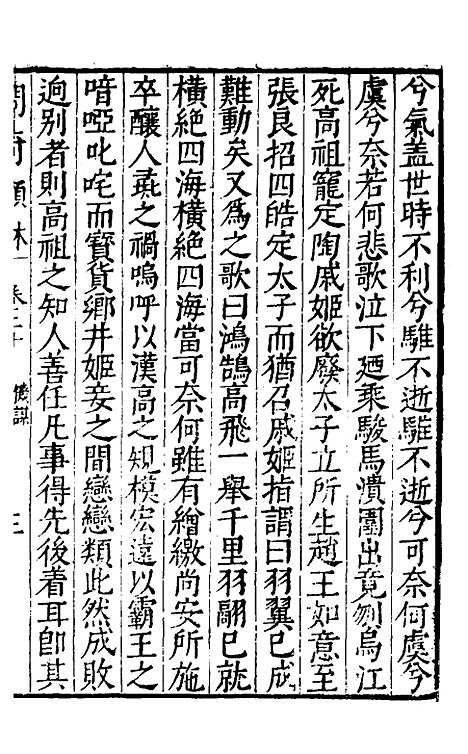 兮氣盖世時不利兮騅不逝騅不逝兮可奈何虞兮
虞兮奈若何悲歌泣下廼乘駿馬潰圍出竟刎烏江
死高祖寵定陶戚姬欲廢太子立所生趙王如意至
張良招四皓定太子而猶召戚姬指謂曰羽翼已成
難動矣又爲之歌曰鴻鵠高飛一舉千里羽翮已就
橫絕四海橫絕四海當可奈何雖有繒繳尚安所施
卒釀人彘之禍嗚呼以漢高之規模宏遠以霸王之
喑啞叱咤而寳貨鄉井姬妾之間戀戀類此然成敗
逈別者則高祖之知人善任凡事得先後着耳卽其
卷三十 三